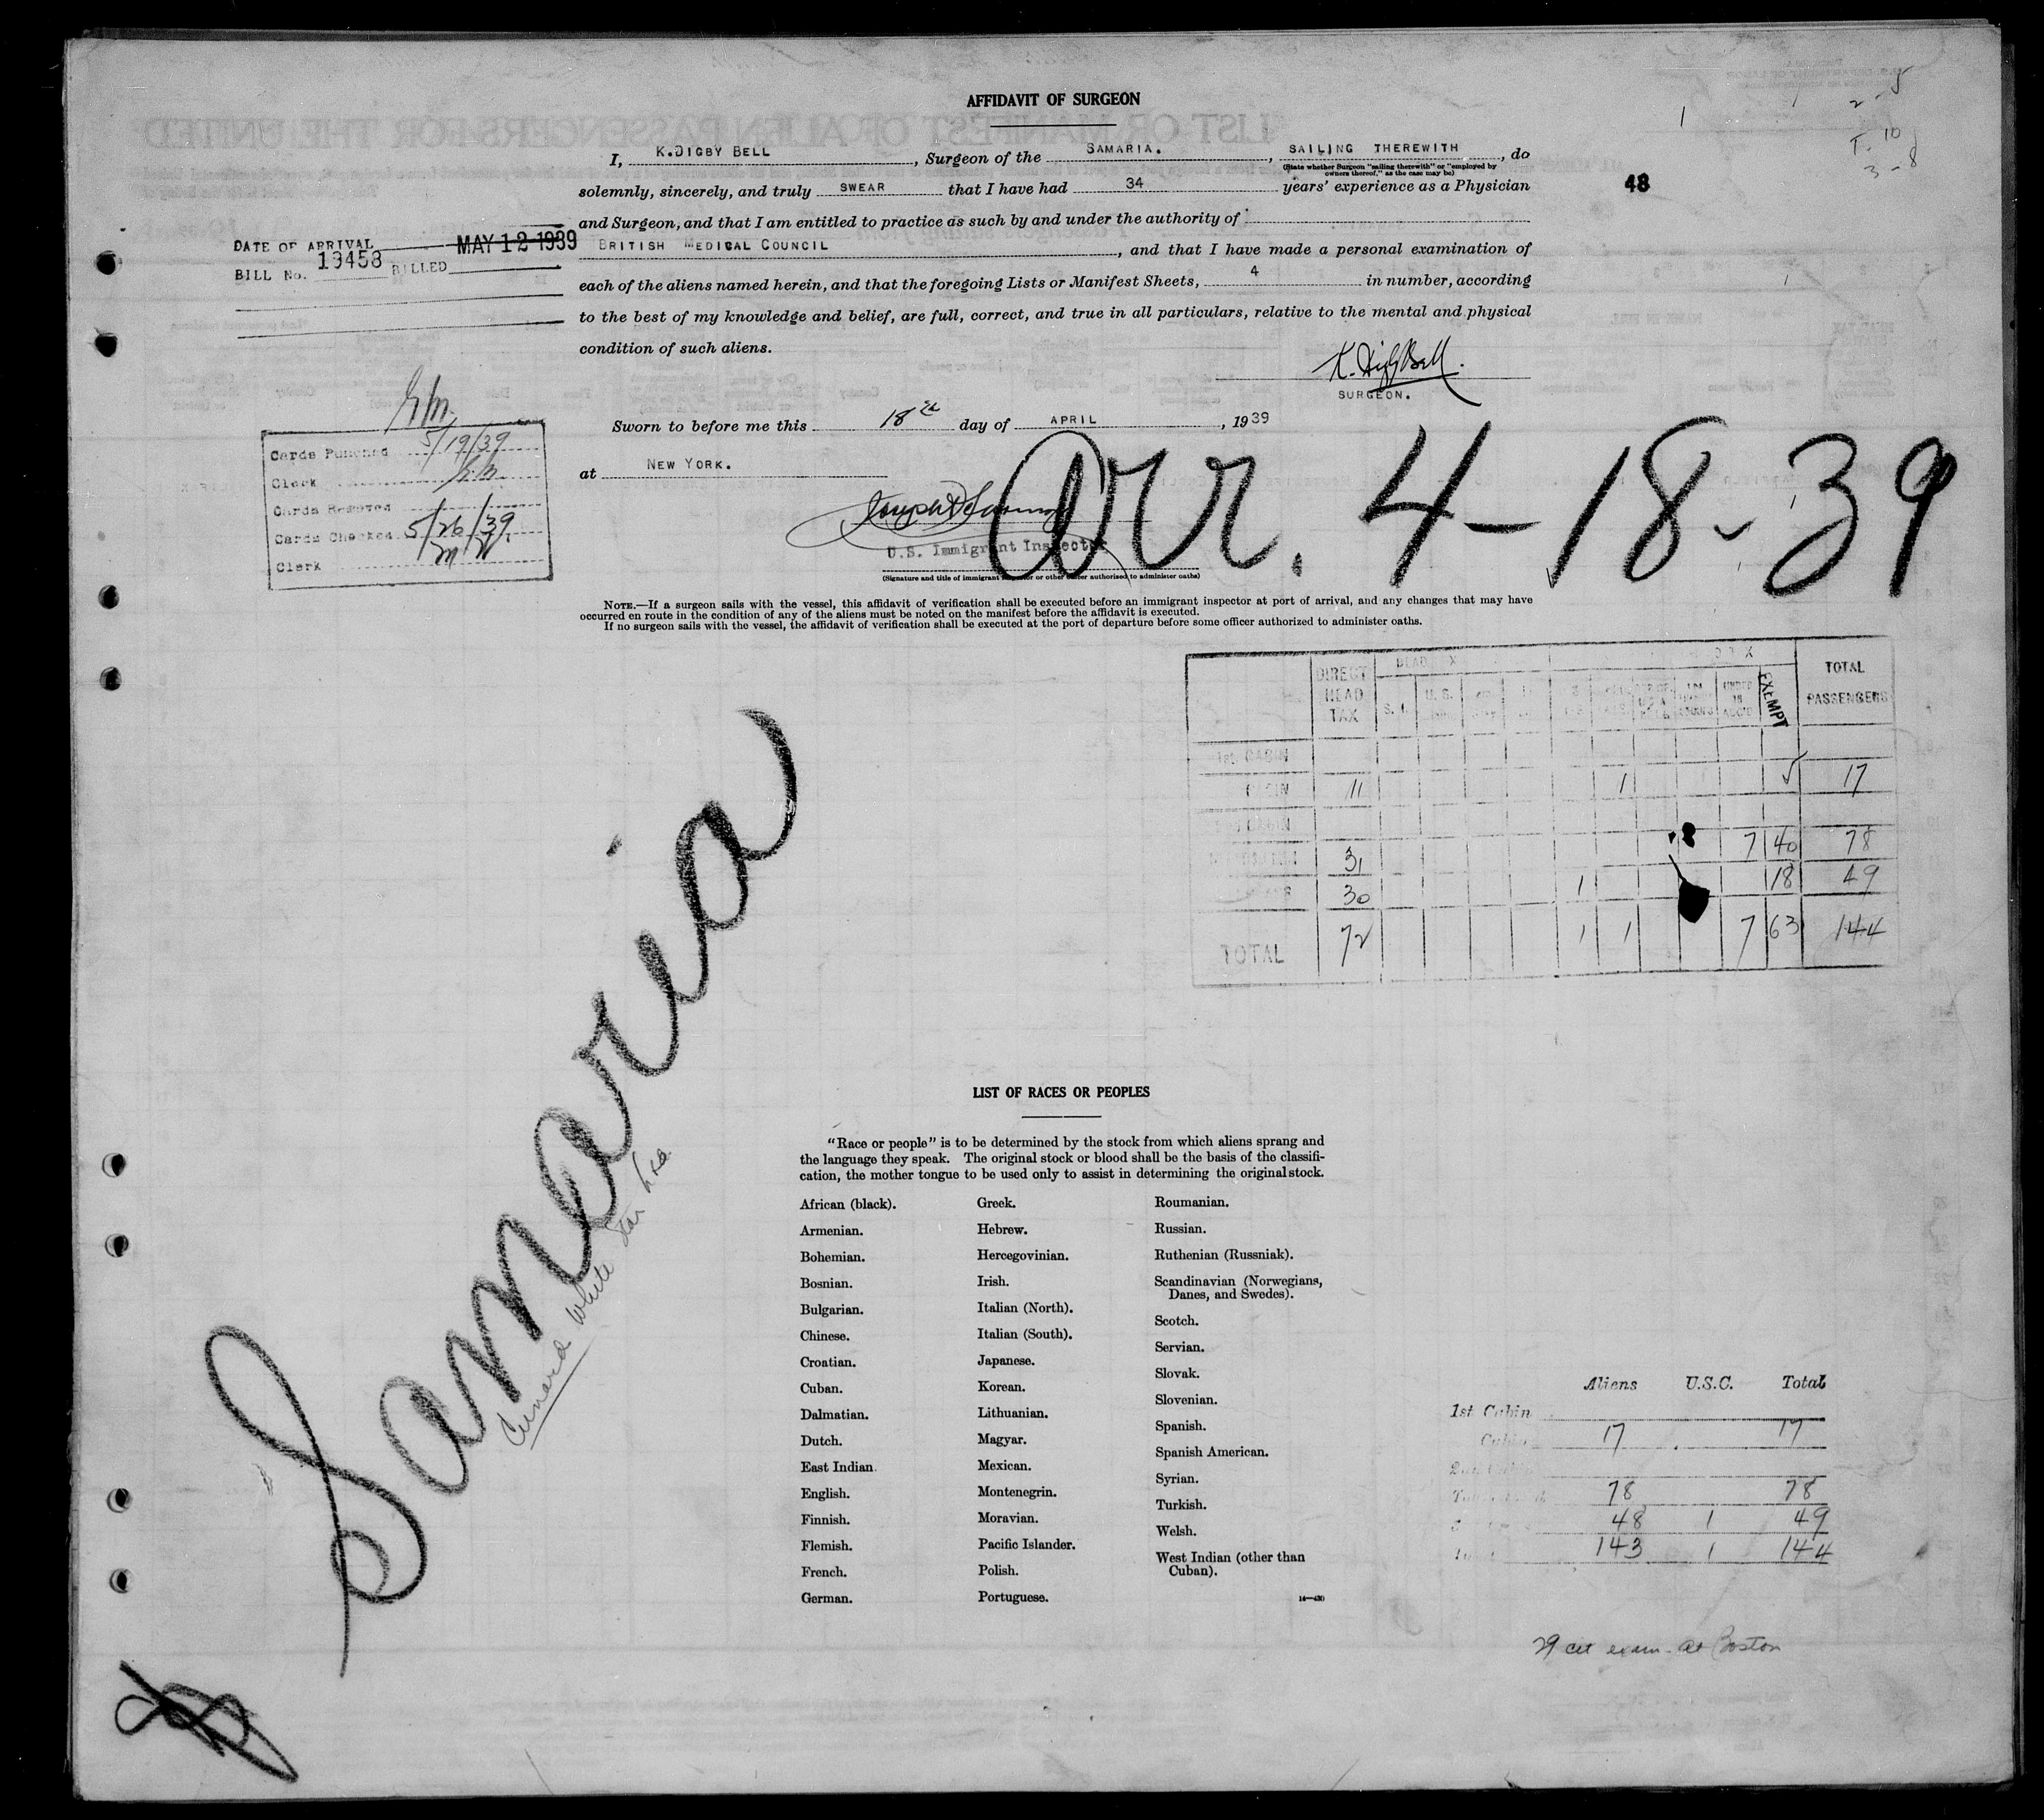 AFFIDAVIT OF SURGEON
I, K.DIGBY BELL, Surgeon of the SAMARIA., SAILING THEREWITH, do
(State whether Surgeon "sailing therewith" or "employed by
owners thereof," as the case may be)
solemnly, sincerely, and truly SWEAR that I have had 34 years' experience as a Physician
48
and Surgeon, and that I am entitled to practice as such by and under the authority of
BRITISH MEDICAL COUNCIL, and that I have made a personal examination of
each of the aliens named herein, and that the foregoing Lists or Manifest Sheets, 4 in number, according
to the best of my knowledge and belief, are full, correct, and true in all particulars, relative to the mental and physical
condition of such aliens.
DATE OF ARRIVAL MAY 12 1939
BILL No. 19458 BILLED
K. Digby Bell.
SURGEON.
Sworn to before me this 18th day of APRIL, 1939
at NEW YORK.
U.S. Immigrant Inspector
(Signature and title of immigrant inspector or other officer authorised to administer oaths)
Arr. 4-18-39
Cards Punched 5/19/39
Clerk
Cards Removed
Cards Checked 5/26/39
Clerk
NOTE.—If a surgeon sails with the vessel, this affidavit of verification shall be executed before an immigrant inspector at port of arrival, and any changes that may have
occurred en route in the condition of any of the aliens must be noted on the manifest before the affidavit is executed.
If no surgeon sails with the vessel, the affidavit of verification shall be executed at the port of departure before some officer authorized to administer oaths.
DIRECT HEAD TAX EXEMPT TOTAL PASSENGERS
1st CABIN
CABIN 11 1 5 17
31 7 40 78
30 1 18 49
TOTAL 72 1 1 7 63 144
Samaria
Cunard White Star Line
LIST OF RACES OR PEOPLES
"Race or people" is to be determined by the stock from which aliens sprang and
the language they speak. The original stock or blood shall be the basis of the classifi-
cation, the mother tongue to be used only to assist in determining the original stock.
African (black).
Armenian.
Bohemian.
Bosnian.
Bulgarian.
Chinese.
Croatian.
Cuban.
Dalmatian.
Dutch.
East Indian.
English.
Finnish.
Flemish.
French.
German.
Greek.
Hebrew.
Hercegovinian.
Irish.
Italian (North).
Italian (South).
Japanese.
Korean.
Lithuanian.
Magyar.
Mexican.
Montenegrin.
Moravian.
Pacific Islander.
Polish.
Portuguese.
Roumanian.
Russian.
Ruthenian (Russniak).
Scandinavian (Norwegians,
Danes, and Swedes).
Scotch.
Servian.
Slovak.
Slovenian.
Spanish.
Spanish American.
Syrian.
Turkish.
Welsh.
West Indian (other than
Cuban).
14—430
Aliens U.S.C. Total
1st Cabin
Cabin 17 17
78 78
48 1 49
143 1 144
29 cit exam. at Boston